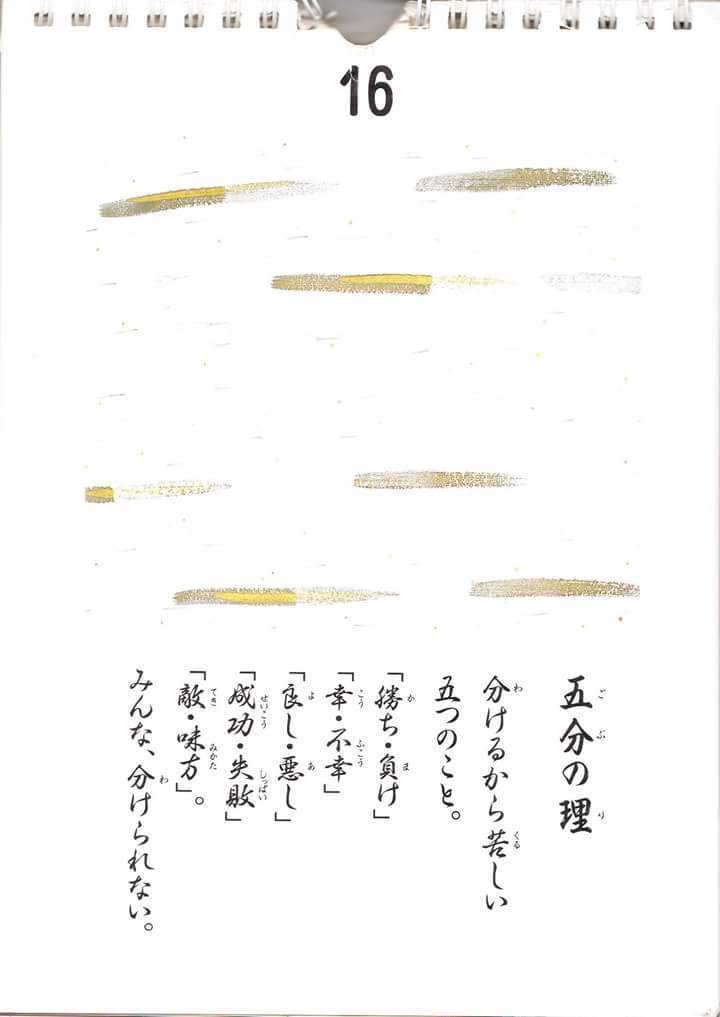 16
五分の理
分けるから苦しい
五つのこと。
「勝ち・負け」
「幸・不幸」
「良し・悪し」
「成功・失敗」
「敵・味方」。
みんな、分けられない。